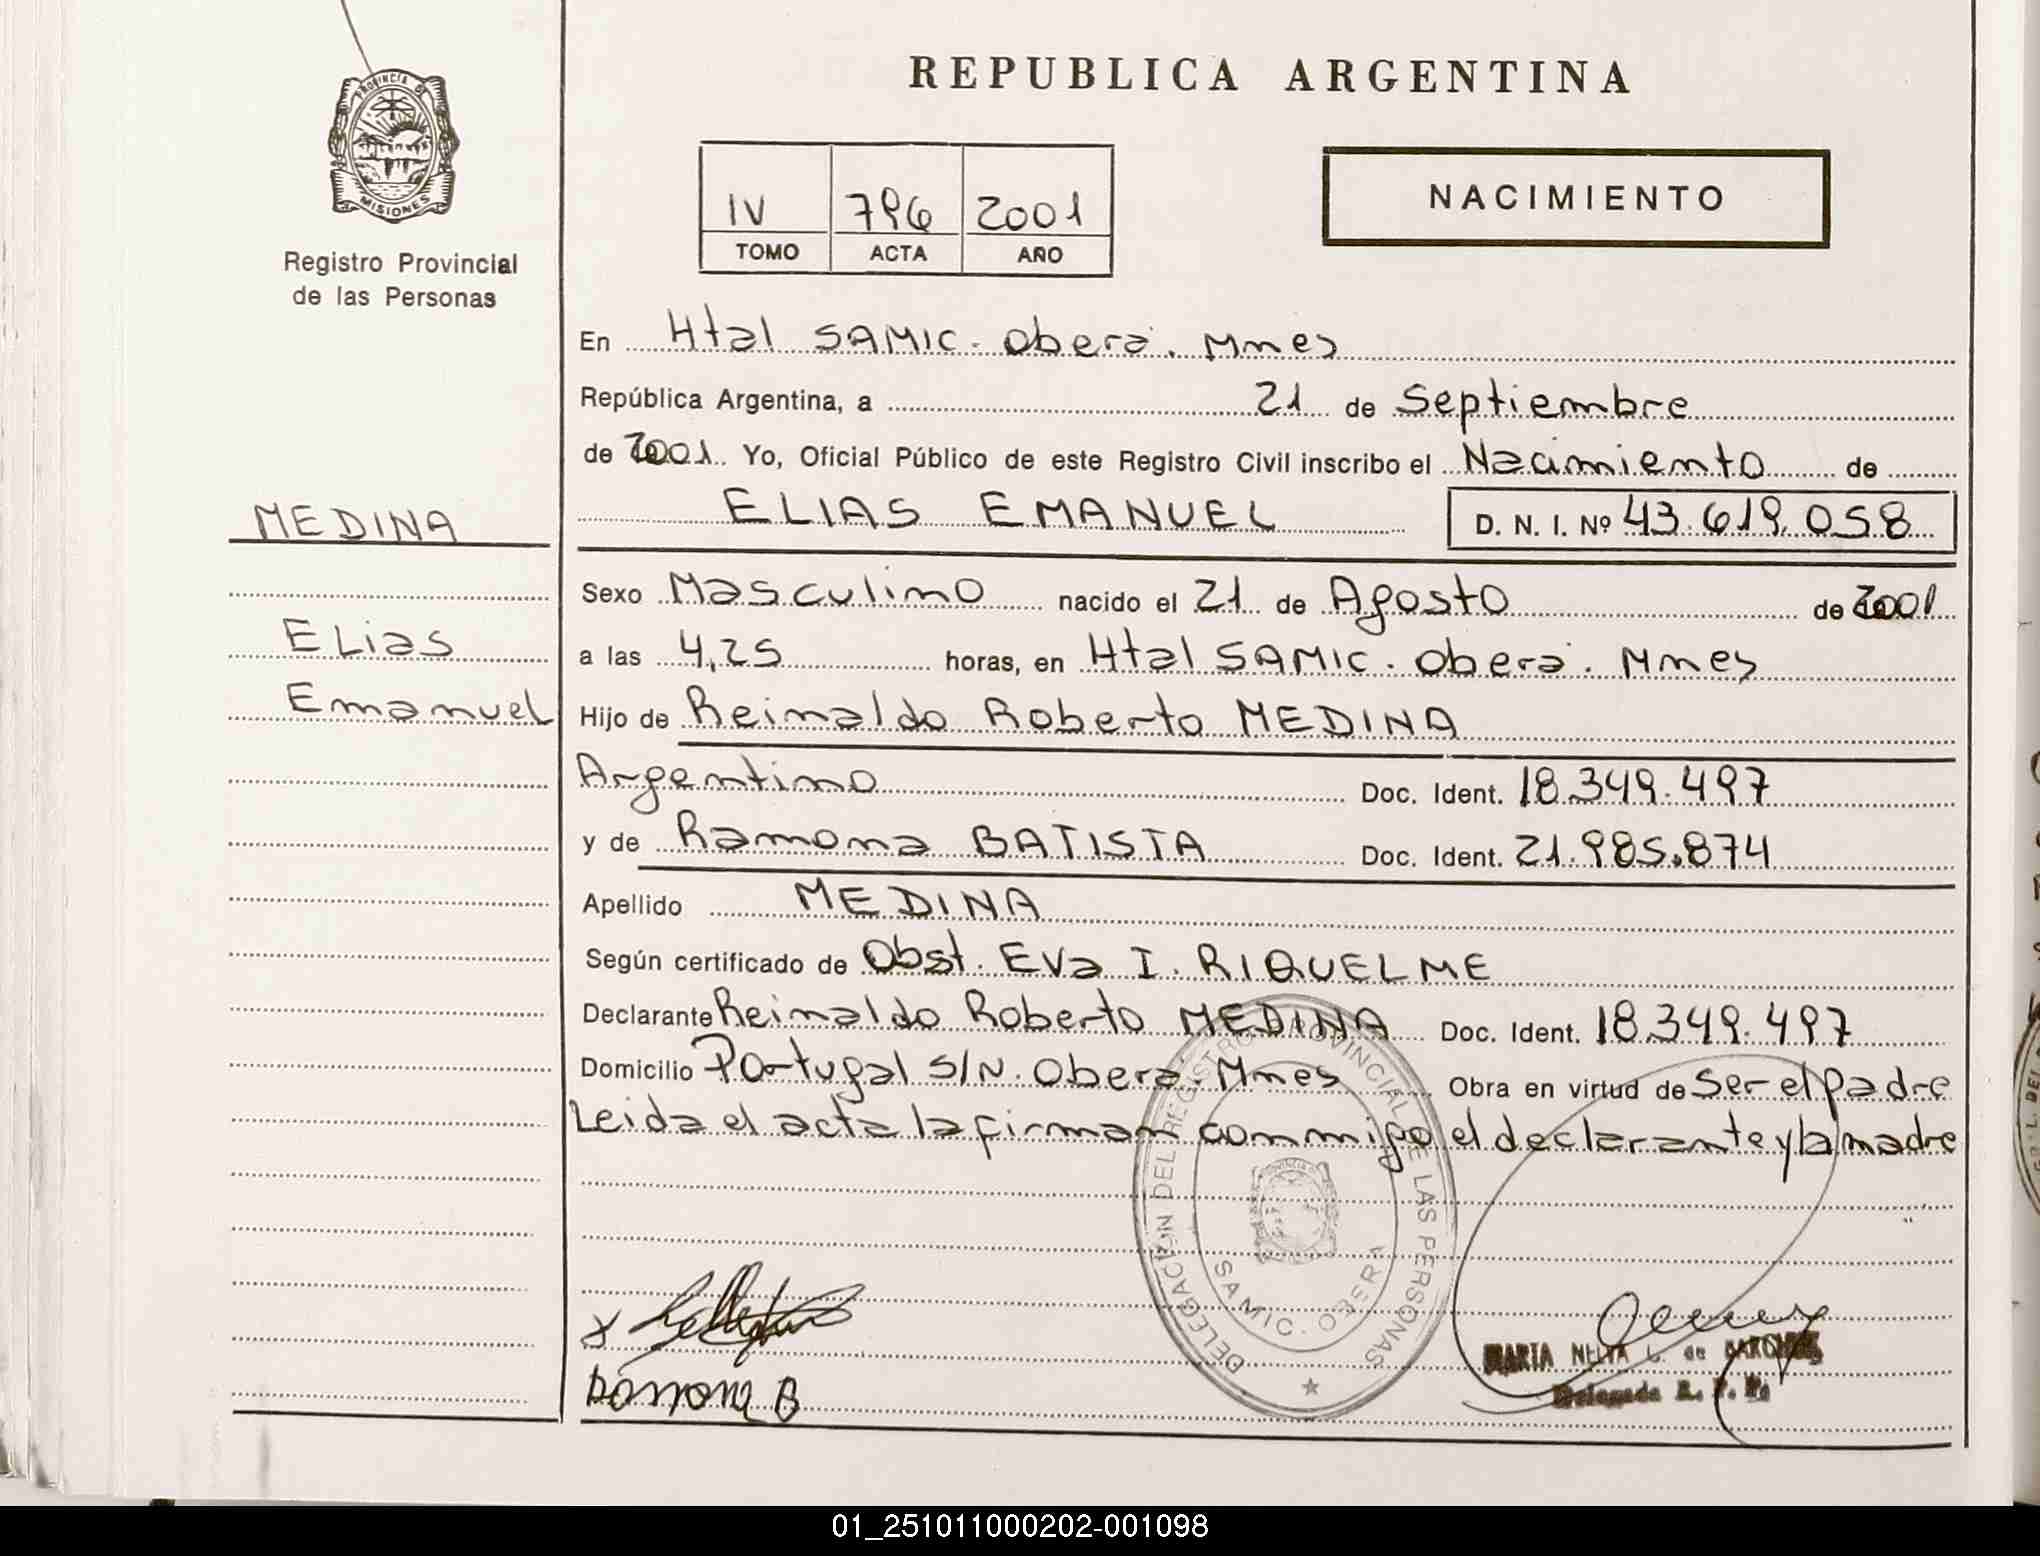 REPUBLICA ARGENTINA
PROVINCIA DE
MISIONES
Registro Provincial
de las Personas
IV 796 2001
TOMO ACTA AÑO
NACIMIENTO
En Htal SAMIC. Oberá. Mnes
República Argentina, a 21 de Septiembre
de 2001. Yo, Oficial Público de este Registro Civil inscribo el Nacimiento de
MEDINA
ELIAS EMANUEL D. N. I. Nº 43.619.058
Elias
Emanuel
Sexo Masculino nacido el 21 de Agosto de 2001
a las 4,25 horas, en Htal SAMIC. Oberá. Mnes
Hijo de Reinaldo Roberto MEDINA
Argentino Doc. Ident. 18.349.497
y de Ramona BATISTA Doc. Ident. 21.985.874
Apellido MEDINA
Según certificado de Obst. Eva I. RIQUELME
Declarante Reinaldo Roberto MEDINA Doc. Ident. 18.349.497
Domicilio Portugal S/N. Oberá. Mnes Obra en virtud de Ser el padre
Leida el acta la firman conmigo el declarante y la madre
DELEGACIÓN DEL REGISTRO PROVINCIAL DE LAS PERSONAS
SAMIC. OBERA
Ramona B
MARIA NELIA L. de
Delegada R. P. P.
01_251011000202-001098